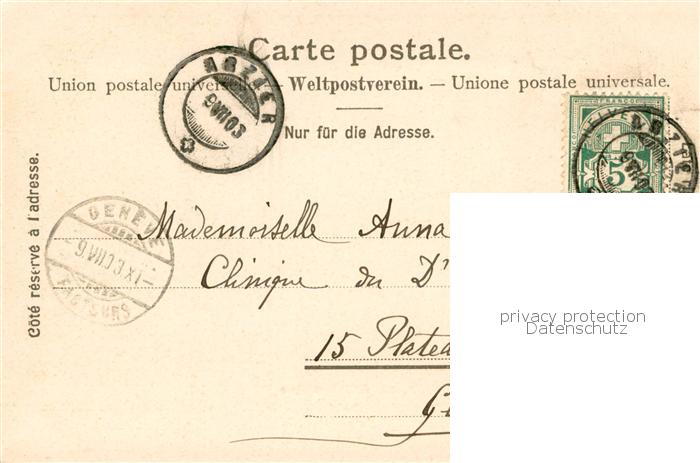 Carte postale.
Union postale universelle — Weltpostverein. — Unione postale universale.
Nur für die Adresse.
Côté réservé à l'adresse.
9 VII 03
FRANCO
HELVE
5
GENÈVE
9.VII.03.XI
FACTEURS
Mademoiselle Anna
Clinique du Dr
15 Platea
privacy protection
Datenschutz